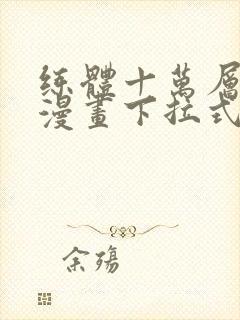 练體十萬層
漫畫下拉式
余殤